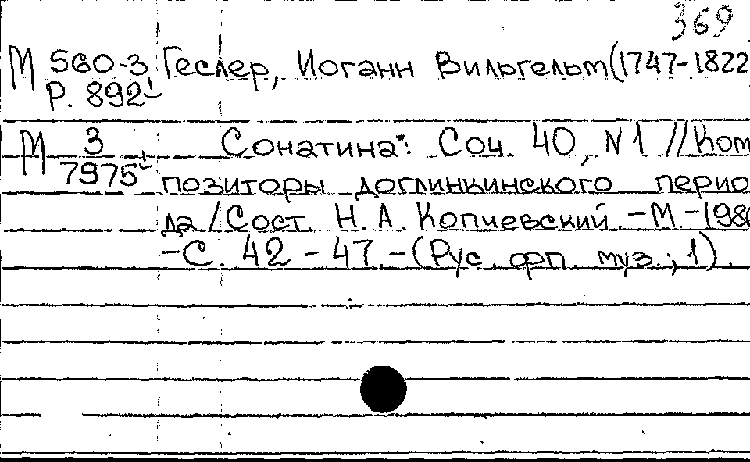 369
М 560-3 Геслер, Иоганн Вильгельм (1747-1822
Р. 892
М 3 Сонатина: Соч. 40, N 1 // Ком
7975 позиторы доглинкинского перио
да / Сост. Н. А. Копчевский. - М - 198
- С. 42 - 47. - (Рус. фп. муз.; 1).